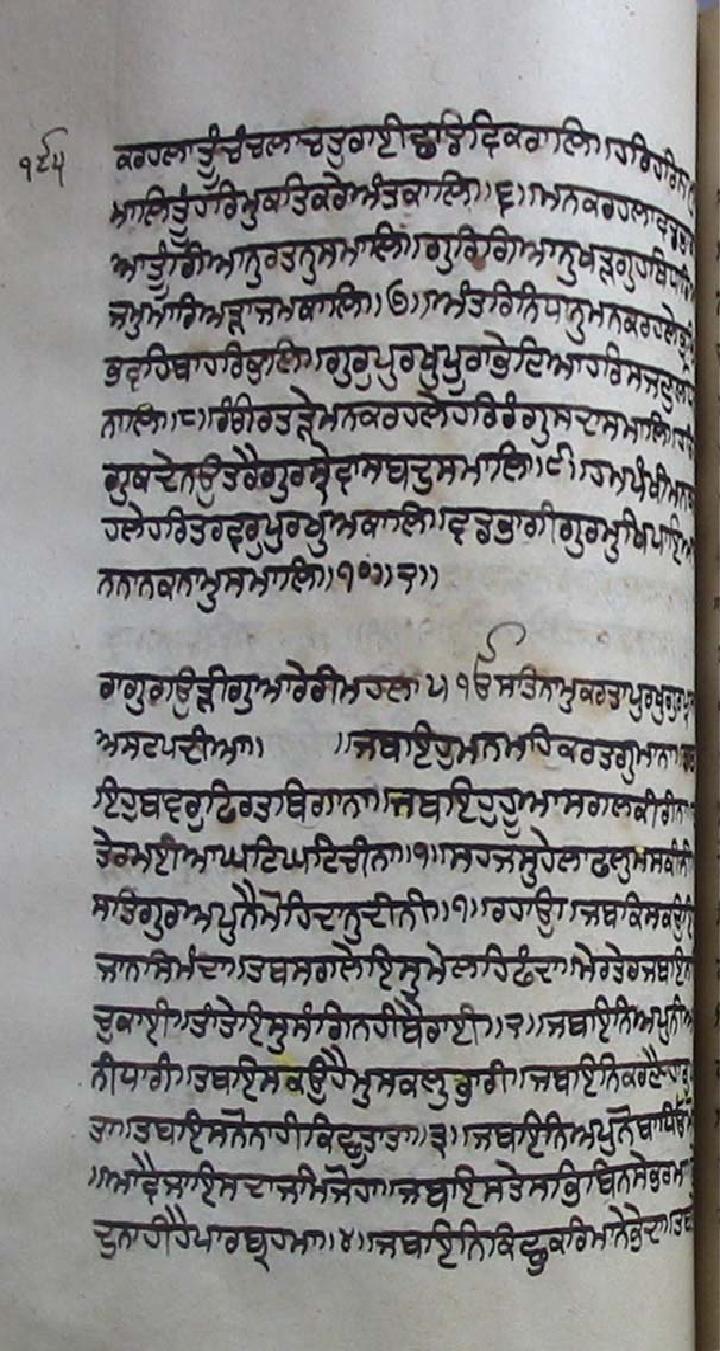 ੧੯੫
ਕਰਹਲਾਤੂੰਚੰਚਲਾਚਤੁਰਾਈਛਡਿਵਿਕਰਾਲਿ॥ਹਰਿਹਰਿਨਾ
ਮਾਲਿਤੂੰਹਰਿਮੁਕਤਿਕਰੇਅੰਤਕਾਲਿ॥੬॥ਮਨਕਰਹਲਾਵਡਭਾ
ਆਤੂੰਗਿਆਨੁਰਤਨੁਸਮਾਲਿ॥ਗੁਰਗਿਆਨੁਖੜਗੁਹਥਿਧਾਰਿ
ਜਮੁਮਾਰਿਅੜਾਜਮਕਾਲਿ॥੭॥ਅੰਤਰਿਨਿਧਾਨੁਮਨਕਰਹਲੇਭ੍ਰਮਿ
ਭਵਹਿਬਾਹਰਿਭਾਲਿ॥ਗੁਰੁਪੁਰਖੁਪੂਰਾਭੇਟਿਆਹਰਿਸਜਣੁਲਧ
ਨਾਲਿ॥੮॥ਰੰਗਿਰਤੜੇਮਨਕਰਹਲੇਹਰਿਰੰਗੁਸਦਾਸਮਾਲਿ॥ਹਰਿ
ਗੁਕਦੇਨਉਤਰੈਗੁਰਸੇਵਾਸਬਦੁਸਮਾਲਿ॥੯॥ਹਮਪੰਖੀਮਨਕ
ਹਲੇਹਰਿਤਰਵਰੁਪੁਰਖੁਅਕਾਲਿ॥ਵਡਭਾਗੀਗੁਰਮੁਖਿਪਾਇਆ
ਨਨਾਨਕਨਾਮੁਸਮਾਲਿ॥੧੦॥੨॥
ਰਾਗੁਗਉੜੀਗੁਆਰੇਰੀਮਹਲਾ੫ ੴਸਤਿਨਾਮੁਕਰਤਾਪੁਰਖੁਗੁਰਪ੍ਰ
ਅਸਟਪਦੀਆ॥ ॥ਜਬਇਹੁਮਨਮਹਿਕਰਤਗੁਮਾਨਾ॥ਤਬ
ਇਹੁਬਵਰੁਫਿਰਤਬਿਗਾਨਾ॥ਜਬਇਹੁਹੂਆਸਗਲਕੀਰੀਨਾ
ਤੇਰਮਈਆਘਟਿਘਟਿਚੀਨਾ॥੧॥ਸਹਜਸੁਹੇਲਾਫਲੁਮਸਕੀਨੀ
ਸਤਿਗੁਰਅਪੁਨੈਮੋਹਿਦਾਨੁਦੀਨੀ॥੧॥ਰਹਾਉ॥ਜਬਕਿਸਕਉਇ
ਜਾਨਸਿਮੰਦਾ॥ਤਬਸਗਲੇਇਸੁਮੇਲਹਿਫੰਦਾ॥ਮੇਰਤੇਰਜਬਇਨ
ਚੁਕਾਈ॥ਤਾਤੇਇਸੁਸੰਗਿਨਹੀਬੈਰਾਈ॥੨॥ਜਬਇਨਿਅਪੁਨੀਅ
ਨੀਧਾਰੀ॥ਤਬਇਸਕਉਹੈਮੁਸਕਲੁਭਾਰੀ॥ਜਬਇਨਿਕਰਣੈਹਾਰੁ
ਤਾ॥ਤਬਇਸਨੋਨਾਹੀਕਿਛੁਤਾਤਾ॥੩॥ਜਬਇਨਿਅਪੁਨੋਬਾਧਿਓ
॥ਆਵੈਜਾਇਸਦਾਜਮਿਜੋਹਾ॥ਜਬਇਸਤੇਸਭਿਬਿਨਸੇਭਰਮਾ
ਦੁਨਾਹੀਹੈਪਾਰਬ੍ਰਹਮਾ॥੪॥ਜਬਇਨਿਕਿਛੁਕਰਿਮਾਨੇਭੇਦਾ॥ਤਬ